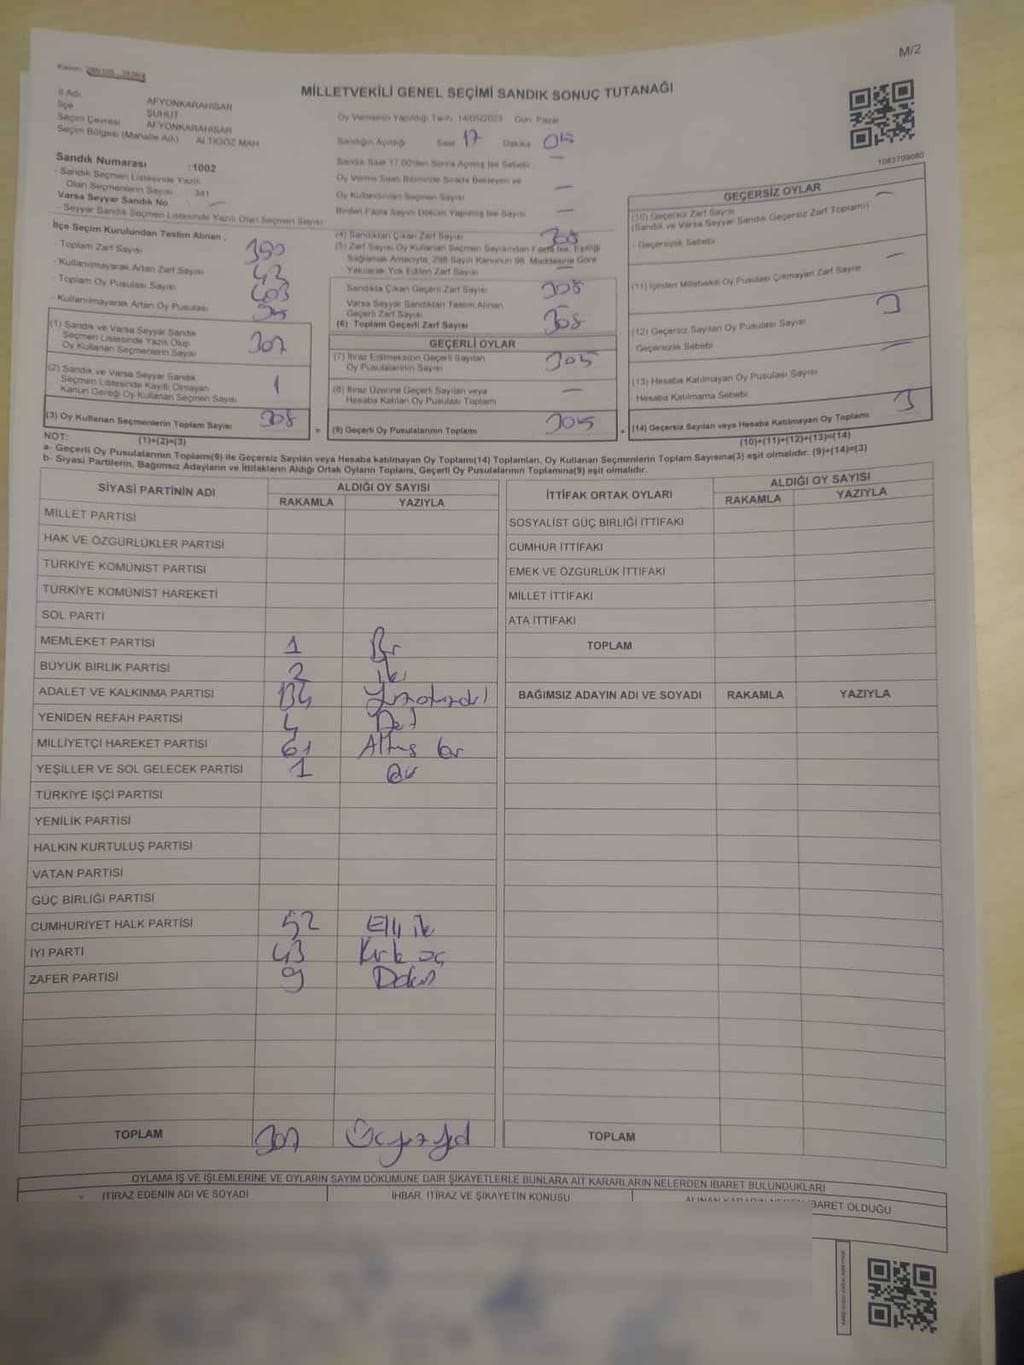 M/2
MİLLETVEKİLİ GENEL SEÇİMİ SANDIK SONUÇ TUTANAĞI
İl Adı AFYONKARAHİSAR
İlçe ŞUHUT
Seçim Çevresi AFYONKARAHİSAR
Seçim Bölgesi (Mahalle Adı) ALTIGÖZ MAH
Sandık Numarası :1002
- Sandık Seçmen Listesinde Yazılı
Olan Seçmenlerin Sayısı 341
Varsa Seyyar Sandık No
- Seyyar Sandık Seçmen Listesinde Yazılı Olan Seçmen Sayısı
Oy Vermenin Yapıldığı Tarih: 14/05/2023 Gün: Pazar
Sandığın Açıldığı Saat 17 Dakika
Sandık Saat 17.00'den Sonra Açılmış İse Sebebi
Oy Verme Saati Bitiminde Sırada Bekleyen ve
Oy Kullandırılan Seçmen Sayısı
Birden Fazla Sayım Döküm Yapılmış İse Sayısı
1083709080
İlçe Seçim Kurulundan Teslim Alınan
- Toplam Zarf Sayısı 350
- Kullanılmayarak Artan Zarf Sayısı
- Toplam Oy Pusulası Sayısı 403
- Kullanılmayarak Artan Oy Pusulası
(1) Sandık ve Varsa Seyyar Sandık
Seçmen Listesinde Yazılı Olup
Oy Kullanan Seçmenlerin Sayısı 307
(2) Sandık ve Varsa Seyyar Sandık
Seçmen Listesinde Kayıtlı Olmayan
Kanun Gereği Oy Kullanan Seçmen Sayısı 1
(3) Oy Kullanan Seçmenlerin Toplam Sayısı 308
(1)+(2)=(3)
(4) Sandıktan Çıkan Zarf Sayısı 308
(5) Zarf Sayısı Oy Kullanan Seçmen Sayısından Fazla İse, Eşitliği
Sağlamak Amacıyla, 298 Sayılı Kanunun 98. Maddesine Göre
Yakılarak Yok Edilen Zarf Sayısı
Sandıkta Çıkan Geçerli Zarf Sayısı 308
Varsa Seyyar Sandıktan Teslim Alınan
Geçerli Zarf Sayısı
(6) Toplam Geçerli Zarf Sayısı 308
GEÇERLİ OYLAR
(7) İtiraz Edilmeksizin Geçerli Sayılan
Oy Pusulalarının Sayısı 305
(8) İtiraz Üzerine Geçerli Sayılan veya
Hesaba Katılan Oy Pusulası Toplamı
(9) Geçerli Oy Pusulalarının Toplamı 305
GEÇERSİZ OYLAR
(10) Geçersiz Zarf Sayısı
(Sandık ve Varsa Seyyar Sandık Geçersiz Zarf Toplamı)
- Geçersizlik Sebebi
(11) İçinden Milletvekili Oy Pusulası Çıkmayan Zarf Sayısı
(12) Geçersiz Sayılan Oy Pusulası Sayısı 3
Geçersizlik Sebebi
(13) Hesaba Katılmayan Oy Pusulası Sayısı
Hesaba Katılmama Sebebi
(14) Geçersiz Sayılan veya Hesaba Katılmayan Oy Toplamı 3
(10)+(11)+(12)+(13)=(14)
NOT:
a- Geçerli Oy Pusulalarının Toplamı(9) ile Geçersiz Sayılan veya Hesaba katılmayan Oy Toplamı(14) Toplamları, Oy Kullanan Seçmenlerin Toplam Sayısına(3) eşit olmalıdır. (9)+(14)=(3)
b- Siyasi Partilerin, Bağımsız Adayların ve İttifakların Aldığı Ortak Oyların Toplamı, Geçerli Oy Pusulalarının Toplamına(9) eşit olmalıdır.
SİYASİ PARTİNİN ADI ALDIĞI OY SAYISI
RAKAMLA YAZIYLA
MİLLET PARTİSİ
HAK VE ÖZGÜRLÜKLER PARTİSİ
TÜRKİYE KOMÜNİST PARTİSİ
TÜRKİYE KOMÜNİST HAREKETİ
SOL PARTİ
MEMLEKET PARTİSİ 1 Bir
BÜYÜK BİRLİK PARTİSİ 2 iki
ADALET VE KALKINMA PARTİSİ 134
YENİDEN REFAH PARTİSİ 4
MİLLİYETÇİ HAREKET PARTİSİ 61 Altmış bir
YEŞİLLER VE SOL GELECEK PARTİSİ 1 Bir
TÜRKİYE İŞÇİ PARTİSİ
YENİLİK PARTİSİ
HALKIN KURTULUŞ PARTİSİ
VATAN PARTİSİ
GÜÇ BİRLİĞİ PARTİSİ
CUMHURİYET HALK PARTİSİ 52 Elli iki
İYİ PARTİ 43 Kırk üç
ZAFER PARTİSİ 9 Dokuz
TOPLAM 307
İTTİFAK ORTAK OYLARI ALDIĞI OY SAYISI
RAKAMLA YAZIYLA
SOSYALİST GÜÇ BİRLİĞİ İTTİFAKI
CUMHUR İTTİFAKI
EMEK VE ÖZGÜRLÜK İTTİFAKI
MİLLET İTTİFAKI
ATA İTTİFAKI
TOPLAM
BAĞIMSIZ ADAYIN ADI VE SOYADI RAKAMLA YAZIYLA
TOPLAM
OYLAMA İŞ VE İŞLEMLERİNE VE OYLARIN SAYIM DÖKÜMÜNE DAİR ŞİKAYETLERLE BUNLARA AİT KARARLARIN NELERDEN İBARET BULUNDUKLARI
İTİRAZ EDENİN ADI VE SOYADI İHBAR, İTİRAZ VE ŞİKAYETİN KONUSU